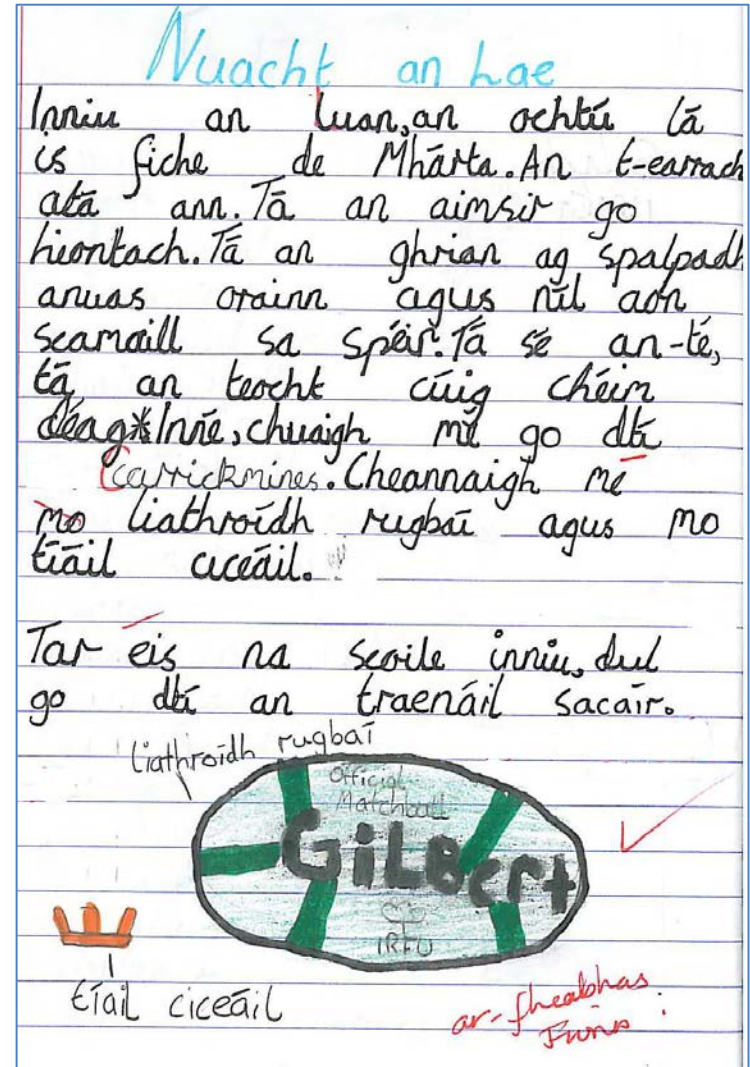 Nuacht an Lae
Inniu an Luan, an ochtú lá
is fiche de Mhárta. An t-earrach
atá ann. Tá an aimsir go
hiontach. Tá an ghrian ag spalpadh
anuas orainn agus níl aon
scamaill sa spéir. Tá sé an-te,
tá an teocht cúig chéim
déag* Inné, chuaigh mé go dtí
Carrickmines. Cheannaigh mé
mo liathroídh rugbaí agus mo
tíáil ciceáil.
Tar éis na scoile inniu, dul
go dtí an traenáil sacair.
liathroídh rugbaí
Official
Matchball
GiLBert
IRFU
tíail ciceáil
ar-fheabhas